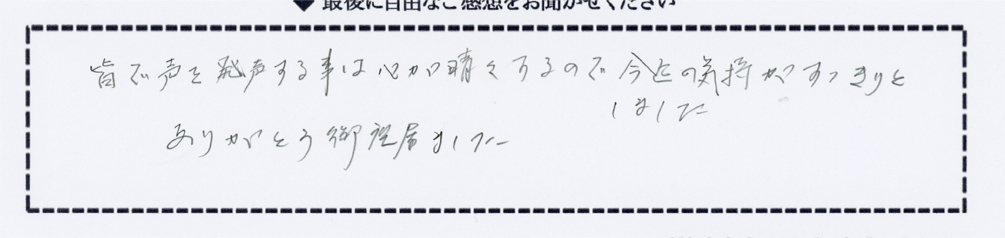 ◆ 最後に自由なご感想をお聞かせください
皆で声を発声する事は心が晴々するので今はの気持がすっきりと
しました
ありがとう御座居ました